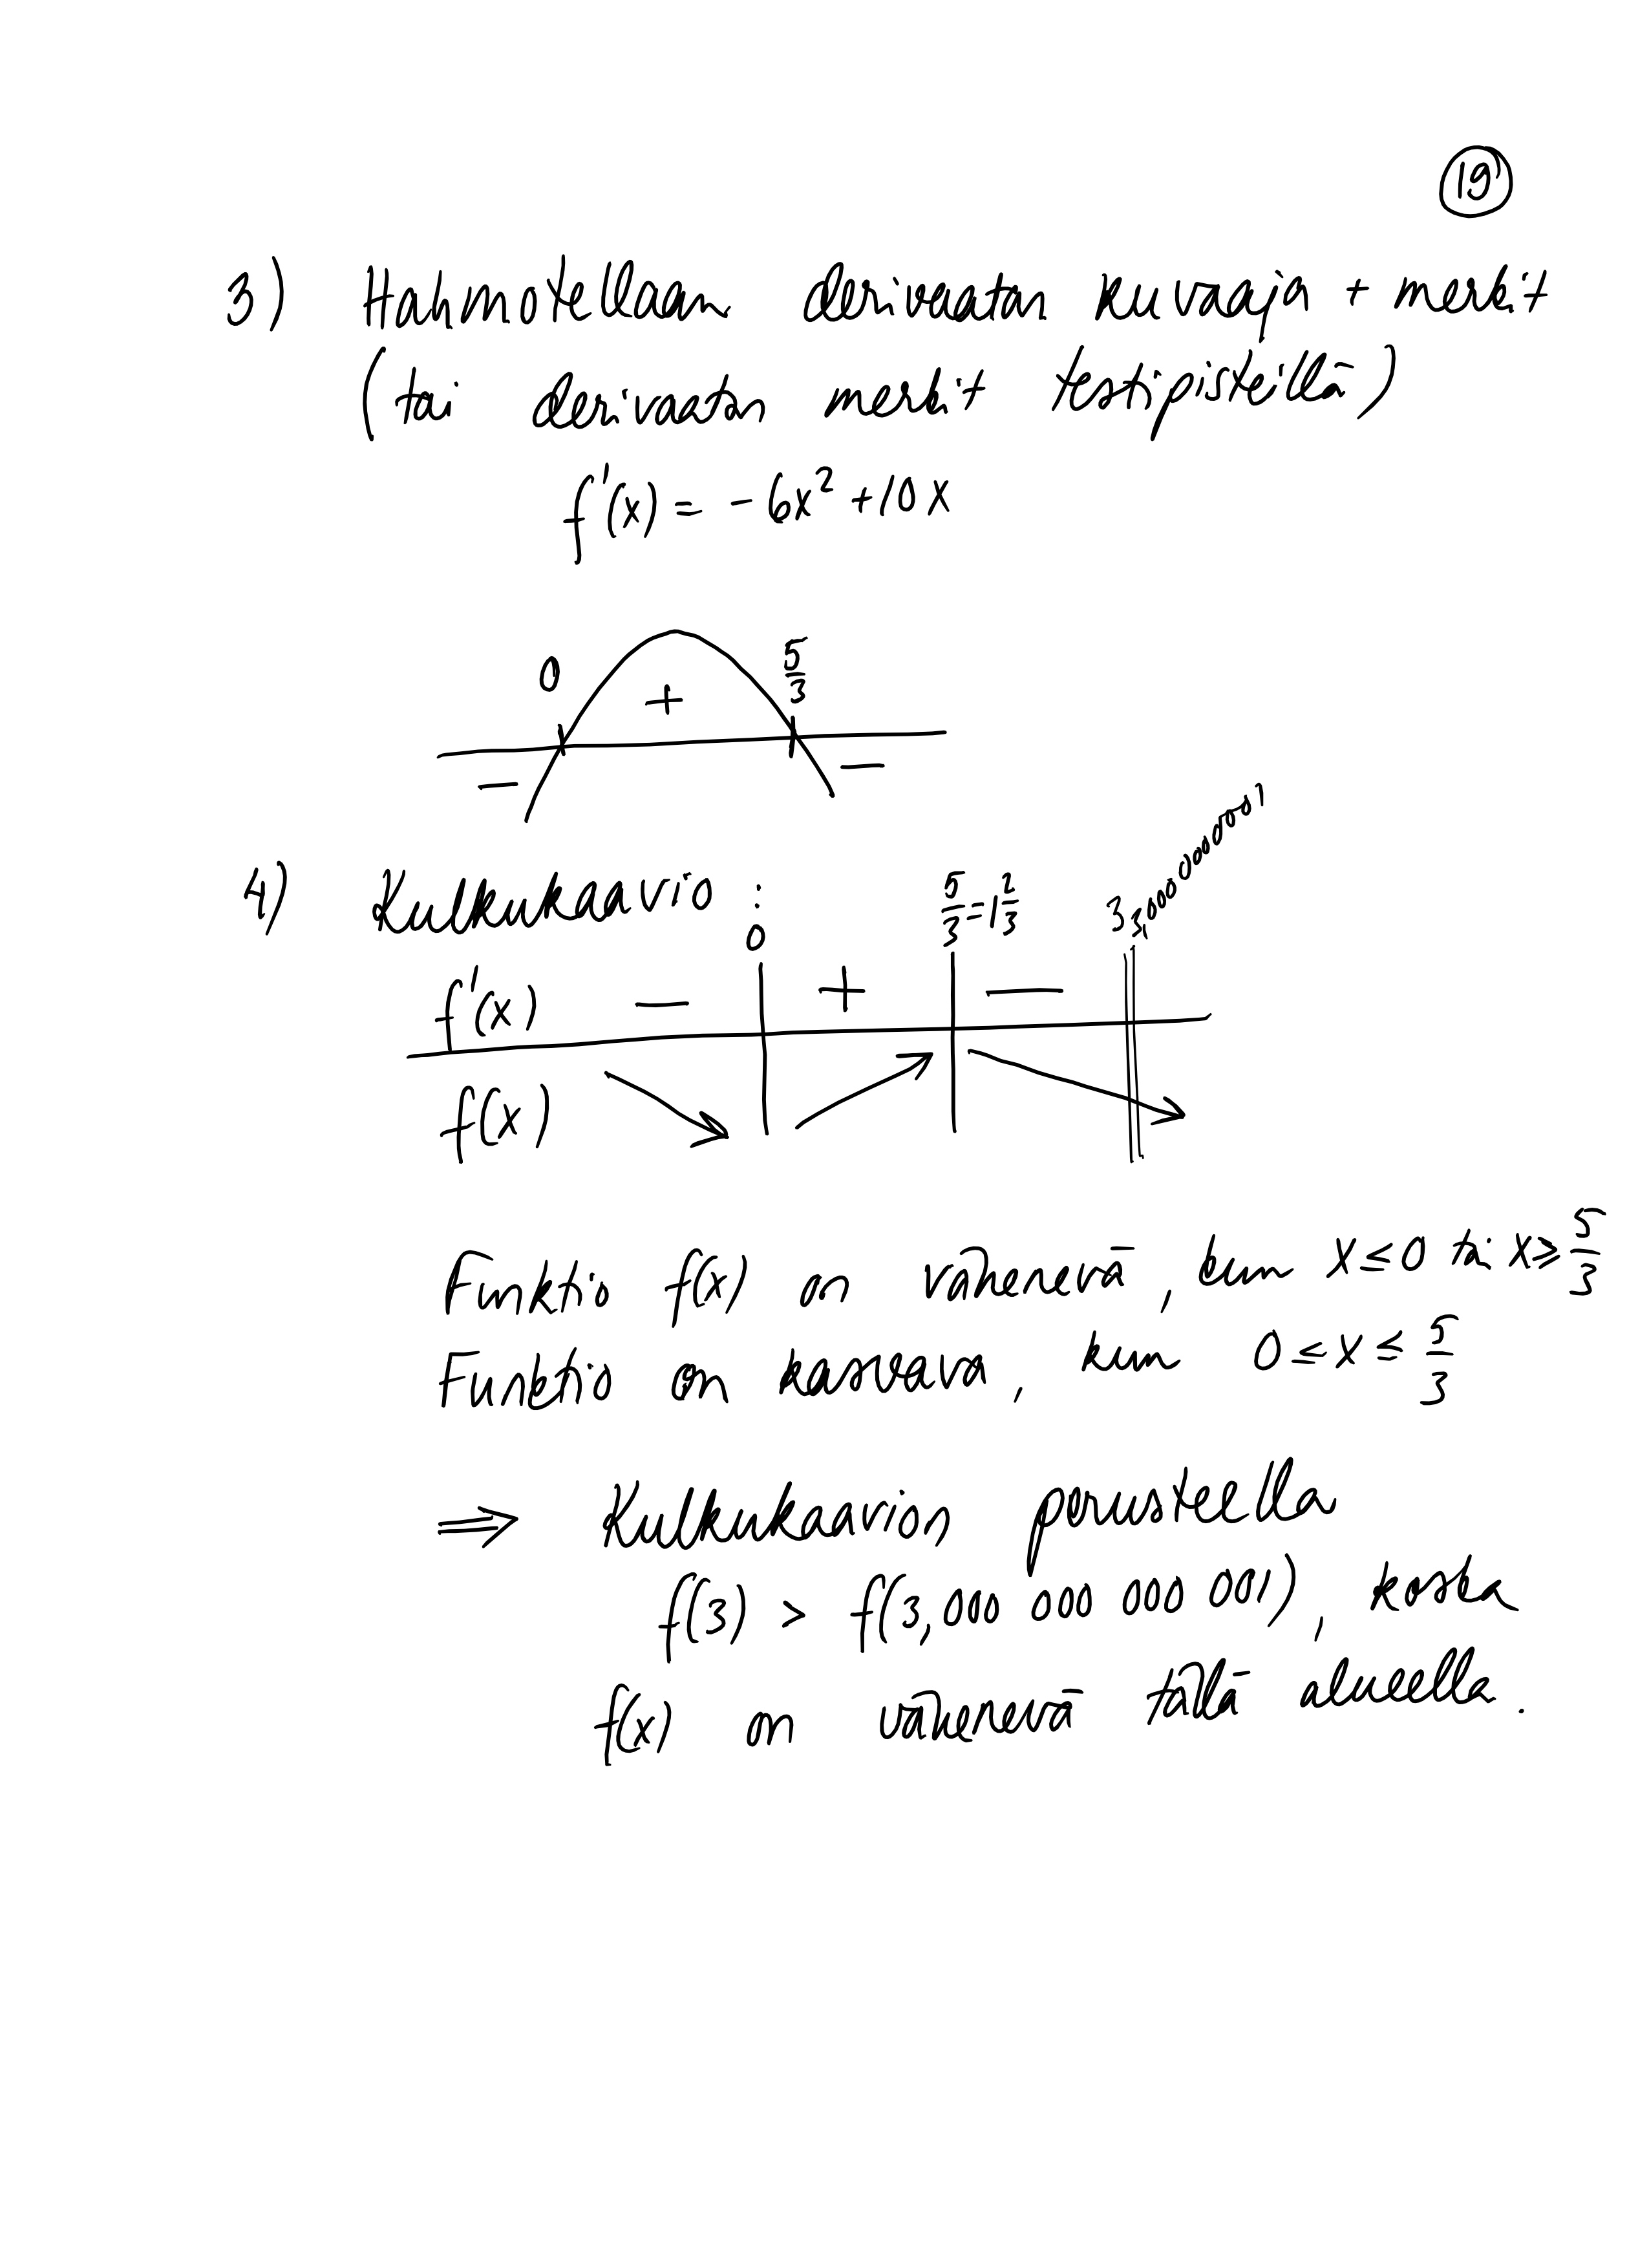 19
3) Hahmotellaan derivaatan kuvaaja + merkit
(tai derivaatan merkit testipisteillä)
f'(x) = -6x² + 10x
0 + 5/3
- -
4) Kulkukaavio :
0 5/3 = 1 2/3 3 3,000 000 000 000 001
f'(x) - + -
f(x)
Funktio f(x) on vähenevä, kun x ≤ 0 tai x ≥ 5/3
Funktio on kasvava, kun 0 ≤ x ≤ 5/3
⇒ Kulkukaavion perusteella
f(3) > f(3,000 000 000 001), koska
f(x) on vähenevä tällä alueella.